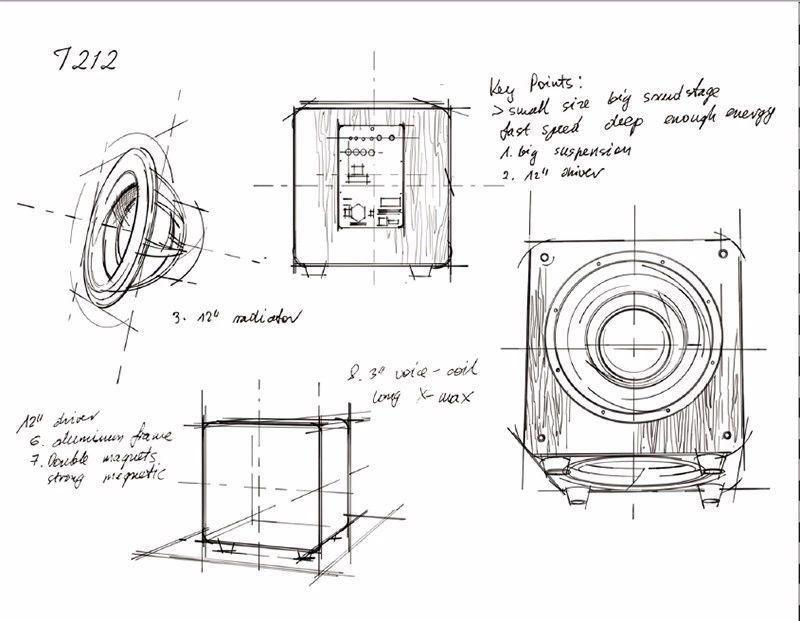 T212
Key Points:
> small size big sound stage
fast speed deep enough energy
1. big suspension
2. 12" driver
3. 12" radiator
8. 3" voice-coil
long X-max
12" driver
6. aluminum frame
7. Double magnets
strong magnetic